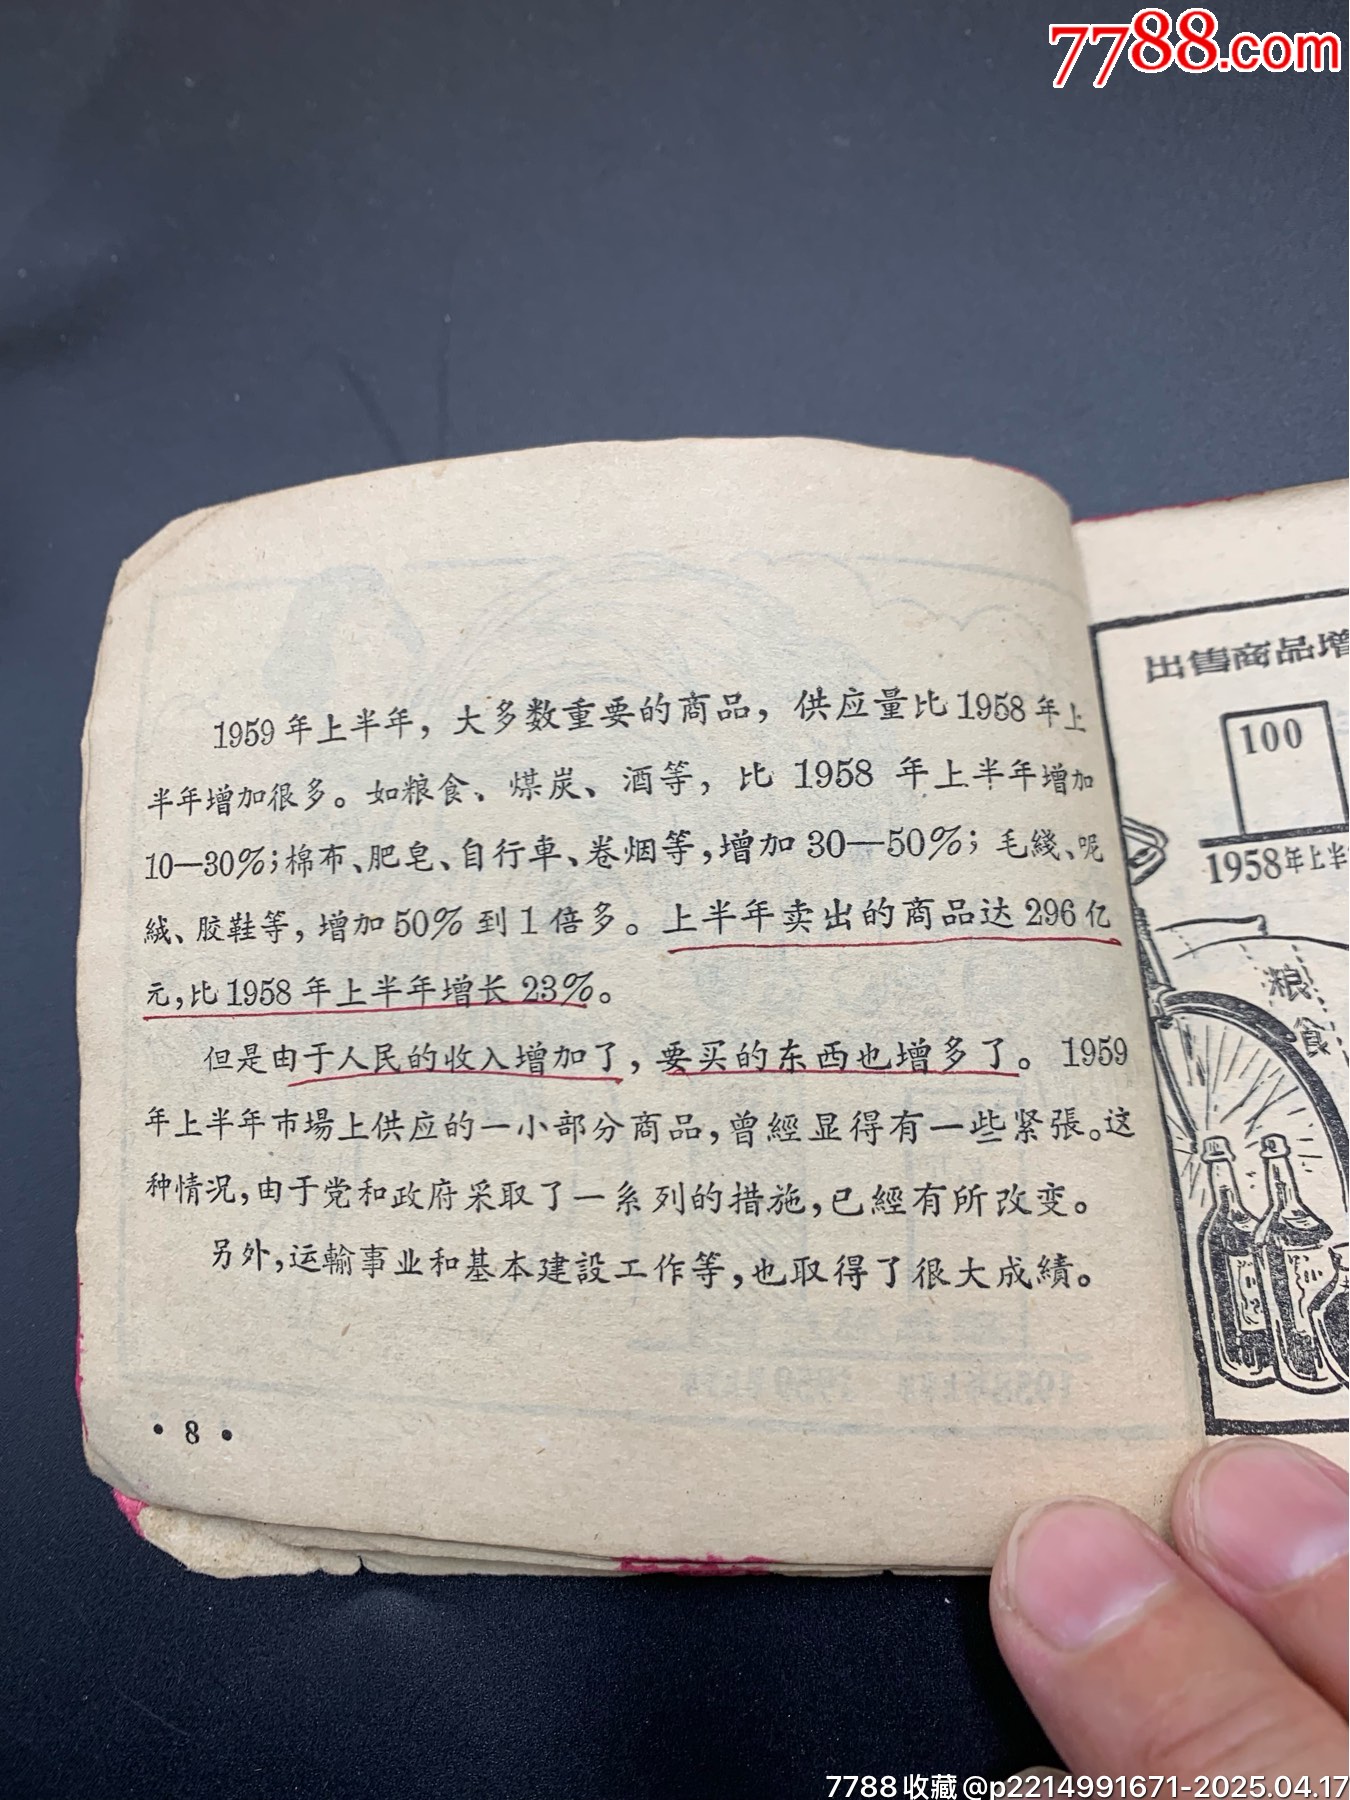 7788.com
1959年上半年，大多数重要的商品，供应量比1958年上
半年增加很多。如粮食、煤炭、酒等，比1958年上半年增加
10—30%；棉布、肥皂、自行車、卷烟等，增加30—50%；毛綫、呢
絨、胶鞋等，增加50%到1倍多。上半年卖出的商品达296亿
元，比1958年上半年增长23%。
但是由于人民的收入增加了，要买的东西也增多了。1959
年上半年市場上供应的一小部分商品，曾經显得有一些紧張。这
种情况，由于党和政府采取了一系列的措施，已經有所改变。
另外，运輸事业和基本建設工作等，也取得了很大成績。
• 8 •
出售商品增
100
1958年上半
粮
食
7788收藏@p2214991671-2025.04.17